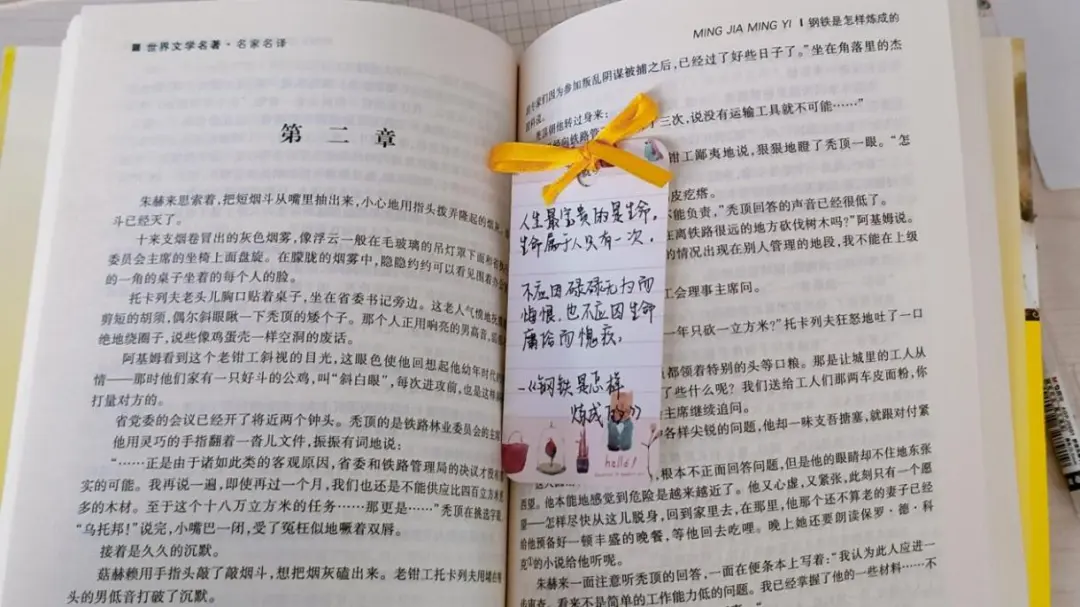 ■ 世界文学名著·名家名译
第 二 章
朱赫来思索着，把短烟斗从嘴里抽出来，小心地用指头拨弄隆起的烟
斗已经灭了。
十来支烟卷冒出的灰色烟雾，像浮云一般在毛玻璃的吊灯罩下面和省执
委员会主席的坐椅上面盘旋。在朦胧的烟雾中，隐隐约约可以看见围着办
的一角的桌子坐着的每个人的脸。
托卡列夫老头儿胸口贴着桌子，坐在省委书记旁边。这老人气愤地
剪短的胡须，偶尔斜眼瞅一下秃顶的矮个子。那个人正用响亮的男高音，
绝地绕圈子，说些像鸡蛋壳一样空洞的废话。
阿基姆看到这个老钳工斜视的目光，这眼色使他回想起他幼年时代的
情——那时他们家有一只好斗的公鸡，叫“斜白眼”，每次进攻前，也是这样
打量对方的。
省党委的会议已经开了将近两个钟头。秃顶的是铁路林业委员会的主
他用灵巧的手指翻着一沓儿文件，振振有词地说：
“……正是由于诸如此类的客观原因，省委和铁路管理局的决议才没有
实的可能。我再说一遍，即使再过一个月，我们也还是不能供应比四百立方米
多的木材。至于这个十八万立方米的任务……那更是……”秃顶在挑选字眼，
“乌托邦！”说完，小嘴巴一闭，受了冤枉似地噘着双唇。
接着是久久的沉默。
菇赫赖用手指头敲了敲烟斗，想把烟灰磕出来。老钳工托卡列夫用
头的男低音打破了沉默。
MING JIA MING YI | 钢铁是怎样炼成的
们因为参加叛乱阴谋被捕之后，已经过了好些日子了。”坐在角落里的杰
他转过身来：
向铁路管 三次，说没有运输工具就不可能……”
钳工鄙夷地说，狠狠地瞪了秃顶一眼。“怎
皮疙瘩。
不能负责，”秃顶回答的声音已经很低了。
在离铁路很远的地方砍伐树木吗？”阿基姆说。
的情况出现在别人管理的地段，我不能在上级
工会理事主席问。
一年只砍一立方米？”托卡列夫狂怒地吐了一口
都领着特别的头等口粮。那是让城里的工人从
了些什么呢？我们送给工人们那两车皮面粉，你
主席继续追问。
各样尖锐的问题，他却一味支吾搪塞，就跟对付紧
根本不正面回答问题，但是他的眼睛却不住地东张
西望。他本能地感觉到危险是越来越近了。他又心虚，又紧张，此刻只有一个愿
望——怎样尽快从这儿脱身，回到家里去，在那里，他那个还不算老的妻子已经
给他预备好一顿丰盛的晚餐，等他回去吃哩。晚上她还要朗读保罗·德·科
克①的小说给他听呢。
朱赫来一面注意听秃顶的回答，一面在便条本上写着：“我认为此人应进一
审查，看来不是简单的工作能力低的问题。我已经掌握了他的一些材料……不
人生最宝贵的是生命，
生命属于人只有一次，
不应因碌碌无为而
悔恨，也不应因生命
庸俗而愧疚。
—《钢铁是怎样
炼成的》
hello!